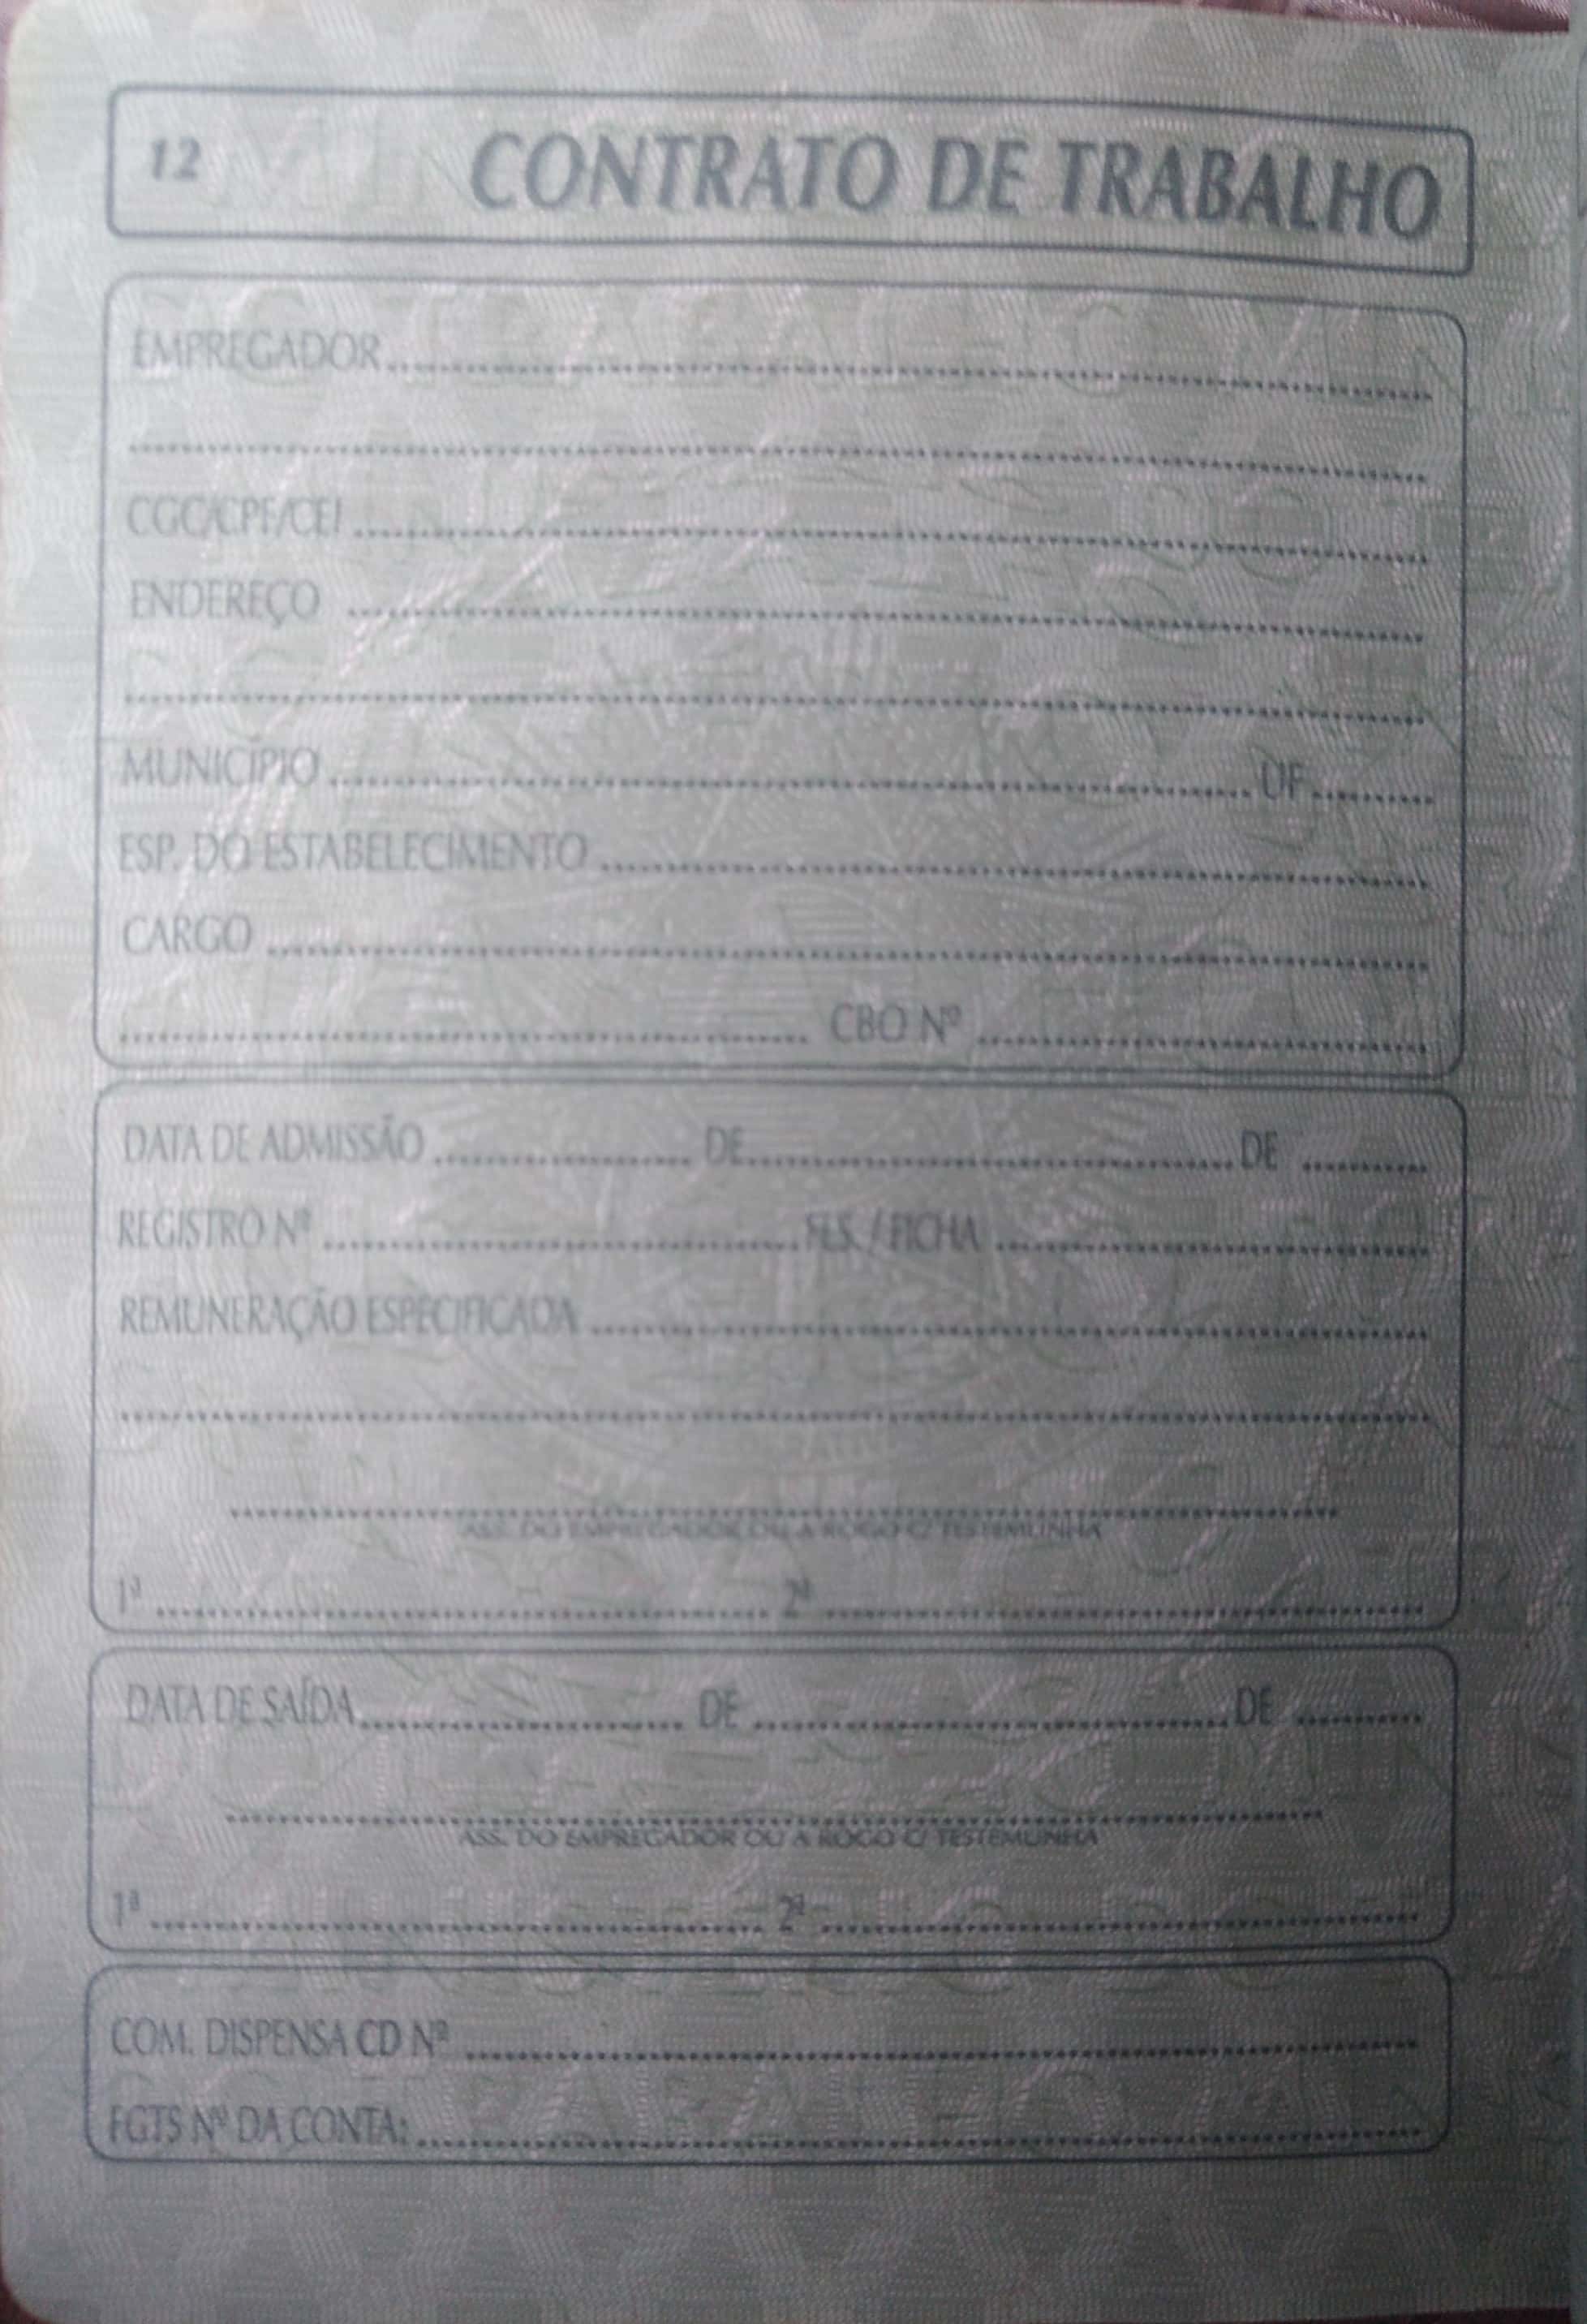 12 CONTRATO DE TRABALHO
EMPREGADOR
CGC/CPF/CEI
ENDEREÇO
MUNICÍPIO UF
ESP. DO ESTABELECIMENTO
CARGO
CBO Nº
DATA DE ADMISSÃO DE DE
REGISTRO Nº FLS. / FICHA
REMUNERAÇÃO ESPECIFICADA
ASS. DO EMPREGADOR OU A ROGO C/ TESTEMUNHA
1ª 2ª
DATA DE SAÍDA DE DE
ASS. DO EMPREGADOR OU A ROGO C/ TESTEMUNHA
1ª 2ª
COM. DISPENSA CD Nº
FGTS Nº DA CONTA: